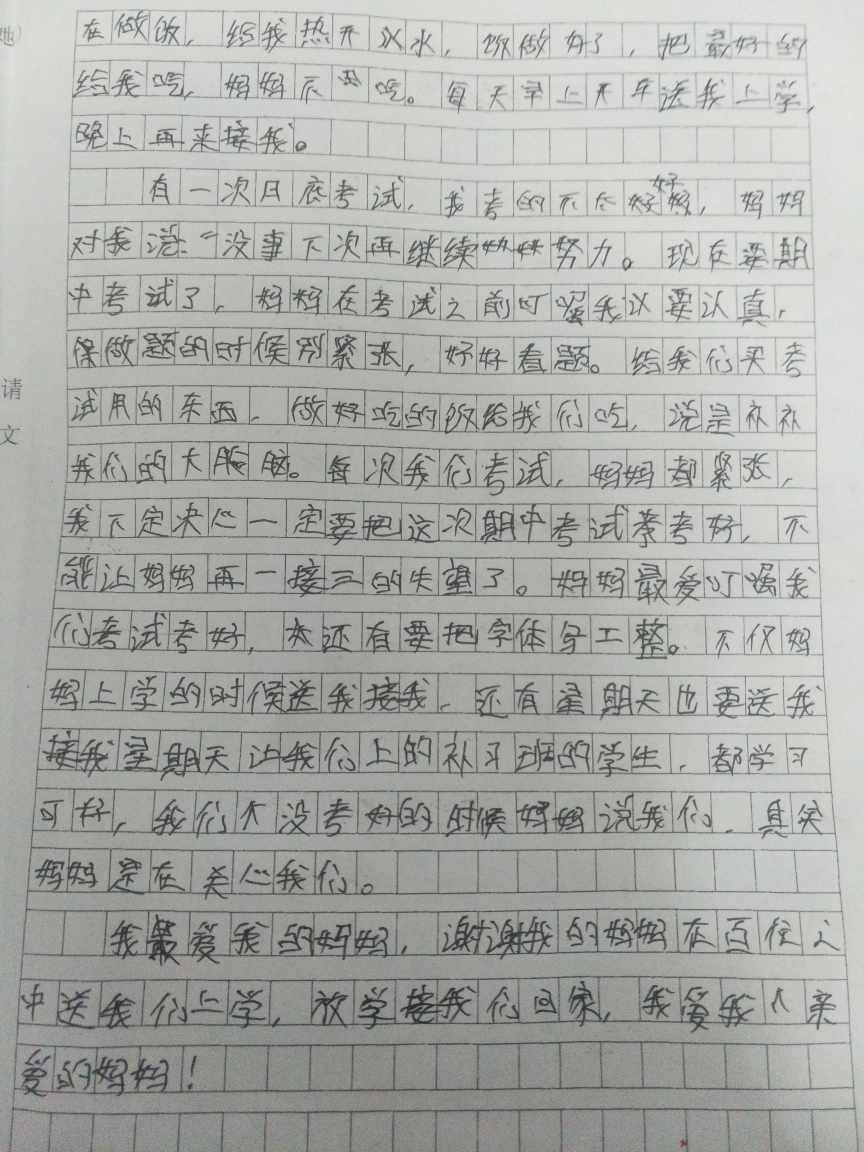 在做饭，给我热开以水，饭做好了，把最好的
给我吃，妈妈不舍吃。每天早上开车送我上学，
晚上再来接我。
有一次月底考试，我考的不太好，妈妈
对我说："没事下次再继续努力。现在要期
中考试了，妈妈在考试之前叮嘱我以要认真，
保做题的时候别紧张，好好看题。给我们买考
试用的东西，做好吃的饭给我们吃，说是补补
我们的大脑。每次我们考试，妈妈都紧张，
我下定决心一定要把这次期中考试考好，不
能让妈妈再一接三的失望了。妈妈最爱叮嘱我
们考试考好，还有要把字体写工整。不仅妈
妈上学的时候送我接我，还有星期天也要送我
接我星期天让我们上的补习班的学生，都学习
可好，我们个没考好的时候妈妈说我们，其实
妈妈是在关心我们。
我最爱我的妈妈，谢谢我的妈妈在百忙之
中送我们上学，放学接我们回家，我爱我个亲
爱的妈妈！
请
文